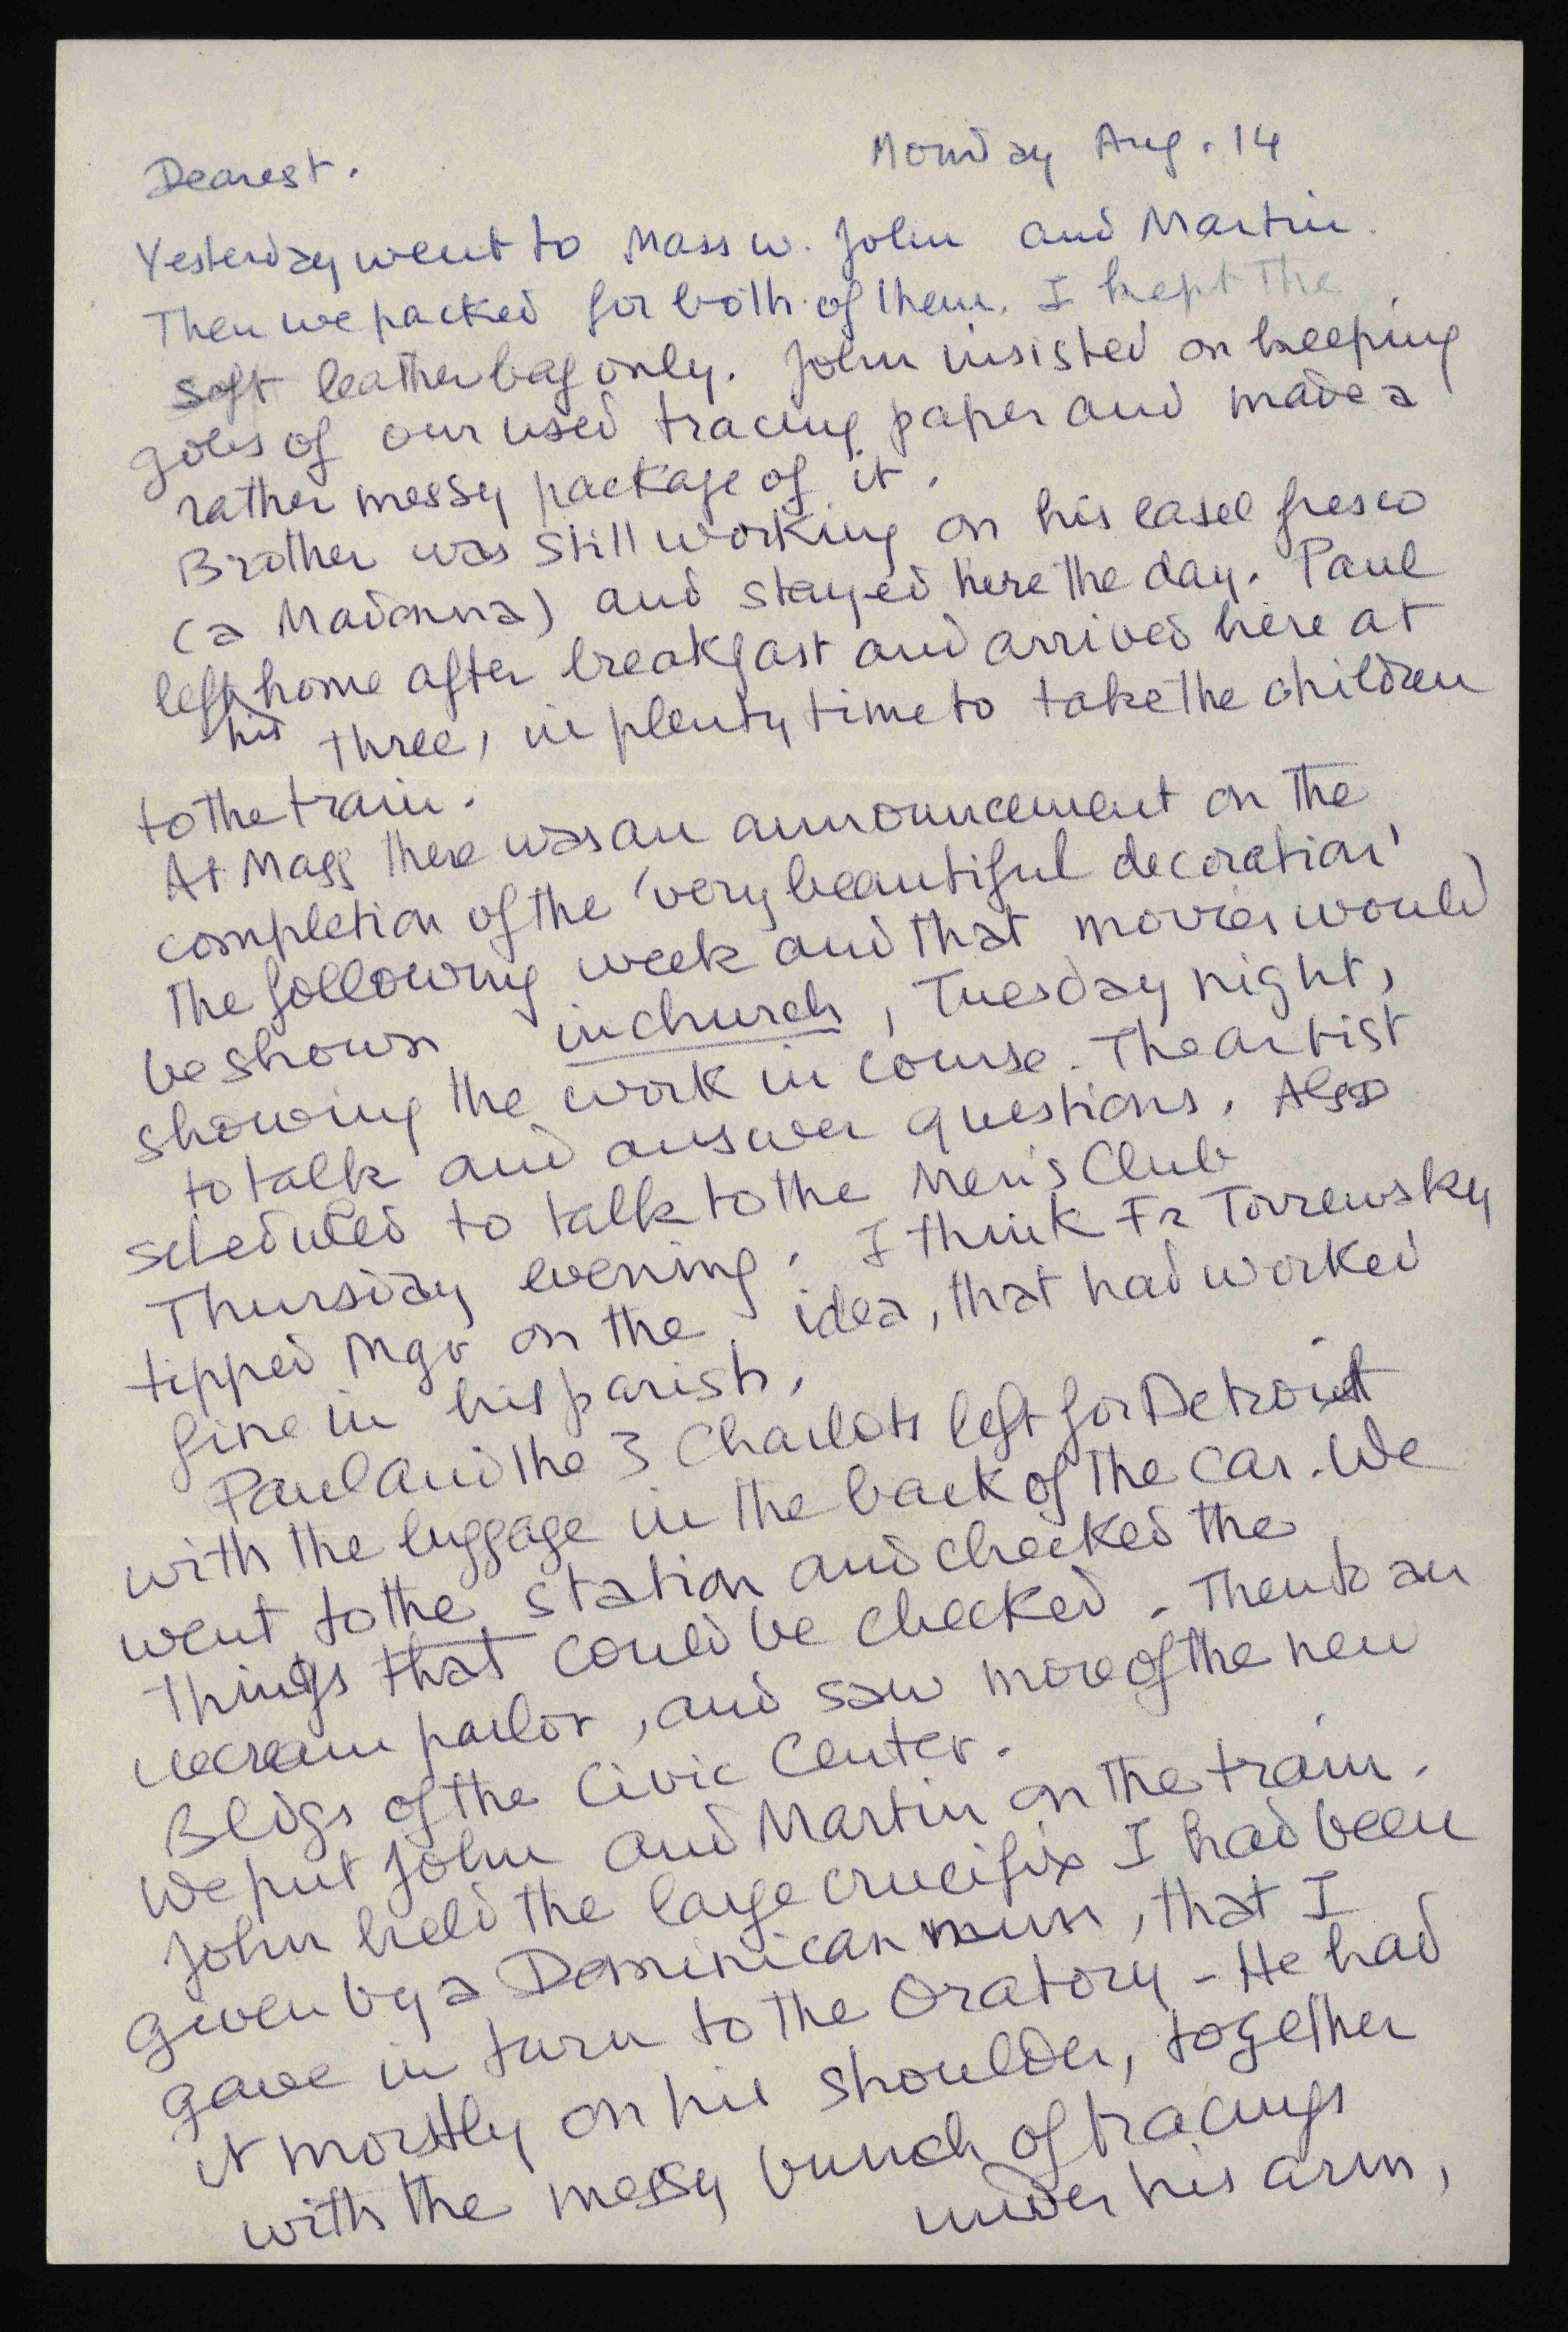 Monday Aug. 14
Dearest.
Yesterday went to Mass w. John and Martin.
Then we packed for both of them. I kept the
soft leather bag only. John insisted on keeping
gobs of our used tracing paper and made a
rather messy package of it.
Brother was still working on his easel fresco
(a Madonna) and stayed here the day. Paul
left home after breakfast and arrived here at
his
three, in plenty time to take the children
to the train.
At Mass there was an announcement on the
completion of the 'very beautiful decoration'
the following week and that movies would
be shown in church, Tuesday night,
showing the work in course. The artist
to talk and answer questions. Also
scheduled to talk to the Men's Club
Thursday evening. I think Fr
tipped Mgr on the idea, that had worked
fine in his parish.
Paul and the 3 Charlots left for Detroit
with the luggage in the back of the car. We
went to the station and checked the
things that could be checked. Then to an
icecream parlor, and saw more of the new
Bldgs of the Civic Center.
We put John and Martin on the train.
John held the large crucifix I had been
given by a Dominican nun, that I
gave in turn to the Oratory - He had
it mostly on his shoulder, together
with the messy bunch of tracings
under his arm,